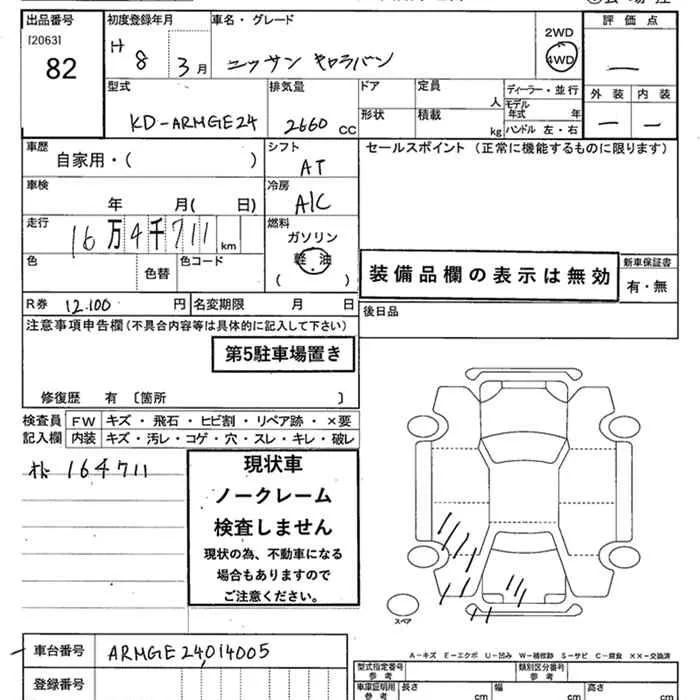 出品番号 初度登録年月 車名・グレード 2WD 評価点
[2063] H 8 3月 ニッサン キャラバン 4WD —
82
型式 排気量 ドア 定員 人 ディーラー・並行 外装 内装
KD-ARMGE24 2660 CC 形状 積載 kg モデル年式 年 — —
ハンドル 左・右
車歴 シフト セールスポイント (正常に機能するものに限ります)
自家用・( ) AT
車検 冷房
年 月( 日) A/C
走行 燃料
16万4千711 km ガソリン
色 色替 色コード 軽油
( )
装備品欄の表示は無効 新車保証書
有・無
R券 12.100 円 名変期限 月 日 後日品
注意事項申告欄(不具合内容等は具体的に記入して下さい)
第5駐車場置き
修復歴 有 〔箇所 〕
検査員 FW キズ・飛石・ヒビ割・リペア跡・×要
記入欄 内装 キズ・汚レ・コゲ・穴・スレ・キレ・破レ
164711
現状車
ノークレーム
検査しません
現状の為、不動車になる
場合もありますので
ご注意ください。
スペア
A-キズ E-エクボ U-凹み W-補修跡 S-サビ C-腐食 ××-交換済
車台番号 ARMGE24014005
登録番号
型式指定番号 類別区分番号
参考
車庫証明用 長さ cm 幅 cm 高さ cm
参考